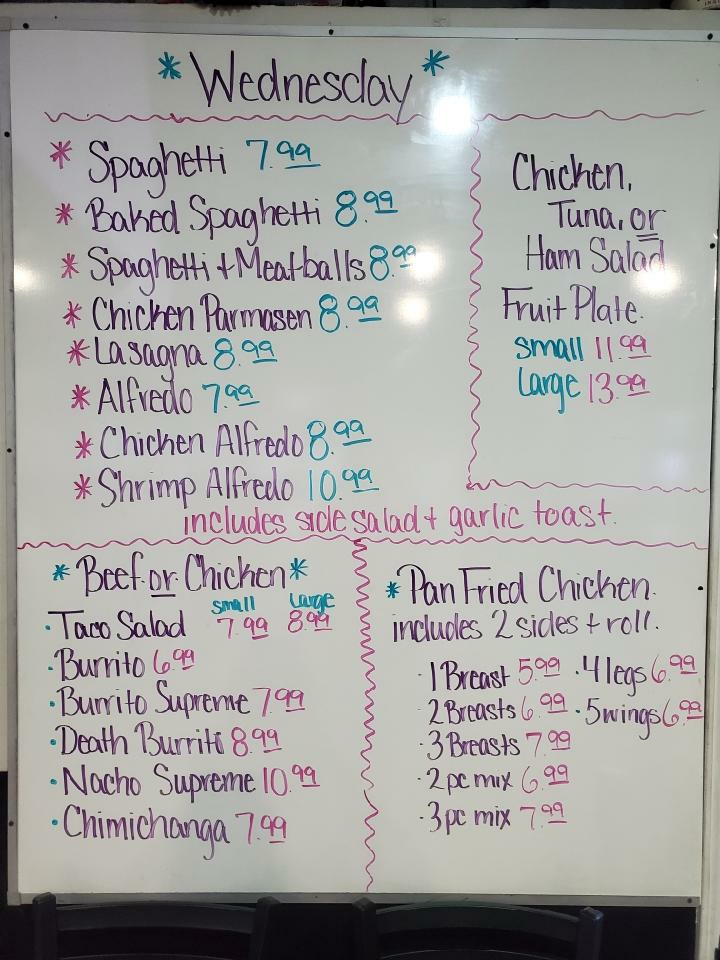 * Wednesday *
* Spaghetti 7.99
* Baked Spaghetti 8.99
* Spaghetti + Meatballs 8.99
* Chicken Parmasen 8.99
* Lasagna 8.99
* Alfredo 7.99
* Chicken Alfredo 8.99
* Shrimp Alfredo 10.99
includes side salad + garlic toast.
Chicken,
Tuna, or
Ham Salad
Fruit Plate.
small 11.99
large 13.99
* Beef or Chicken *
small large
· Taco Salad 7.99 8.99
· Burrito 6.99
· Burrito Supreme 7.99
· Death Burrito 8.99
· Nacho Supreme 10.99
· Chimichanga 7.99
* Pan Fried Chicken.
includes 2 sides + roll.
· 1 Breast 5.99 · 4 legs 6.99
2 Breasts 6.99 · 5 wings 6.99
· 3 Breasts 7.99
· 2 pc mix 6.99
· 3 pc mix 7.99